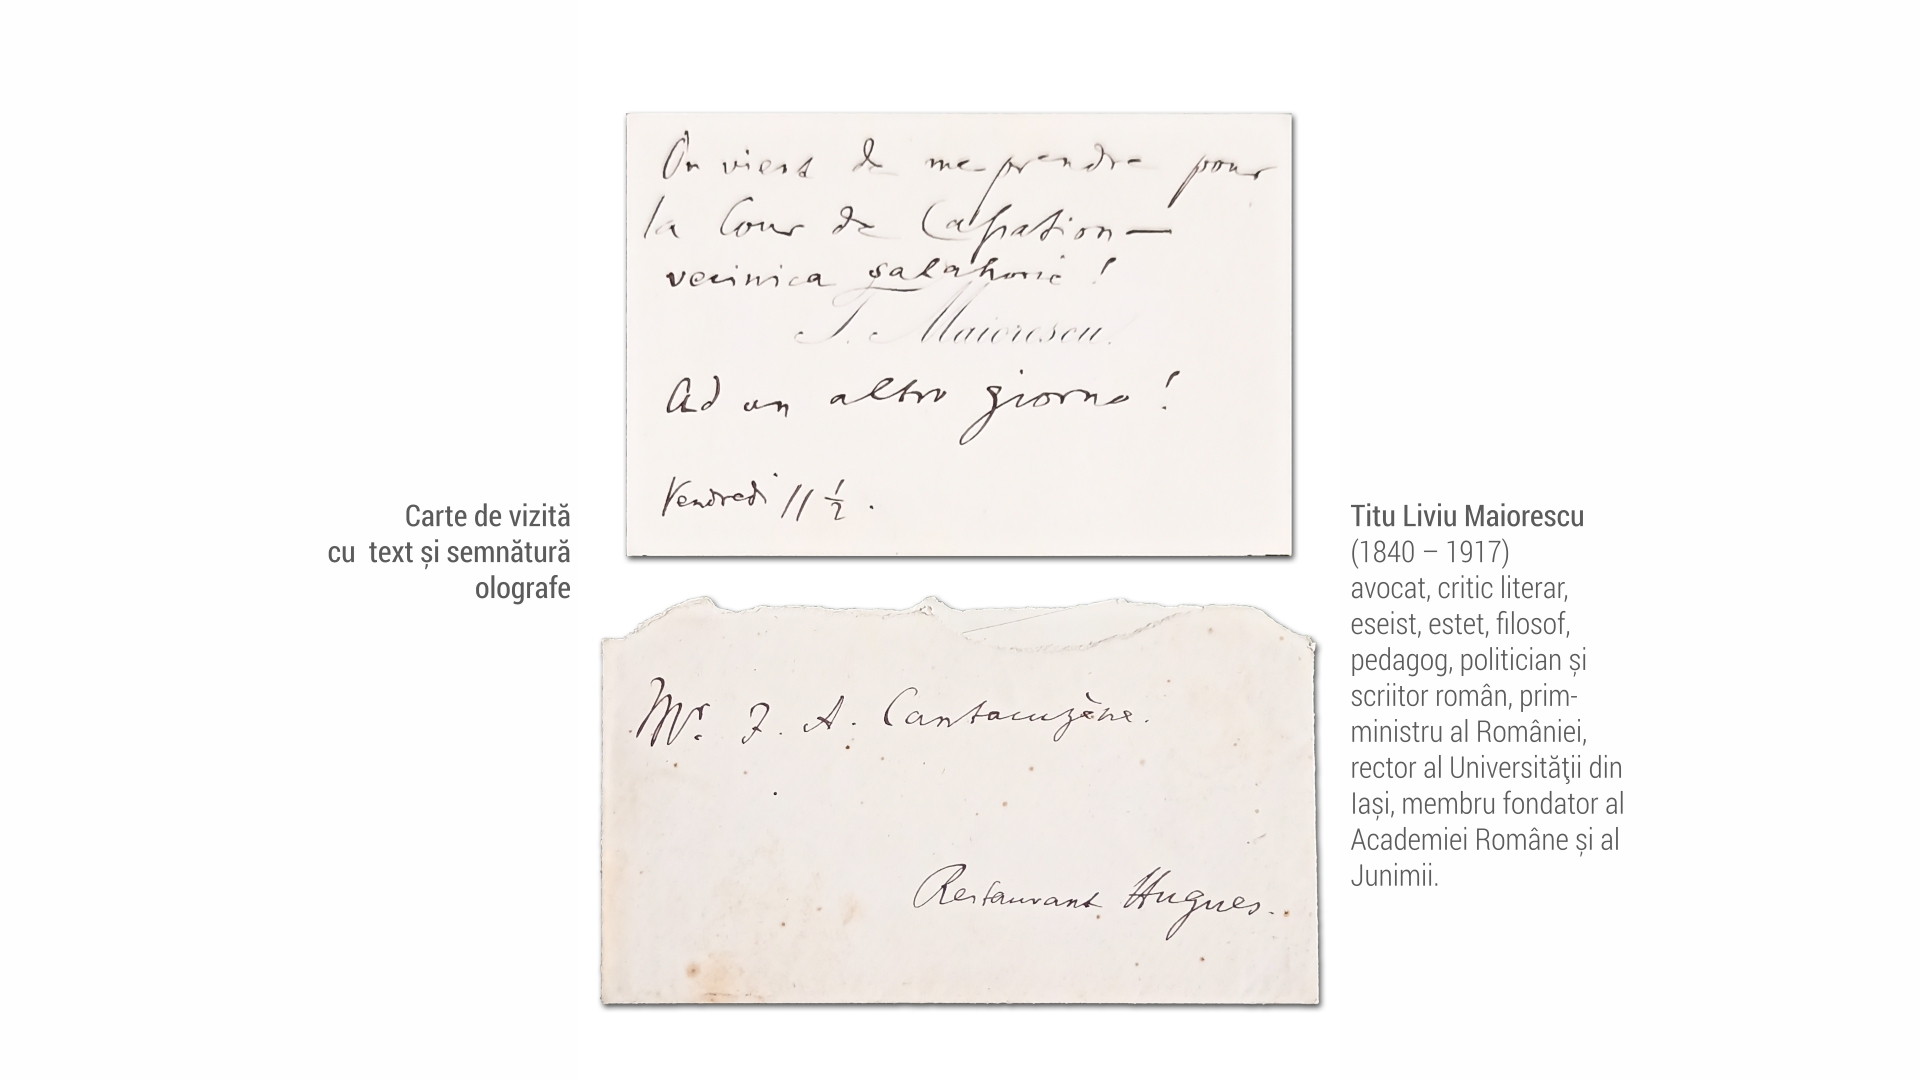 On vient de me prendre pour
la Cour de Cassation —
vecinica !
T. Maiorescu.
Ad un altro giorno !
Vendredi 11 1/2 .
Carte de vizită
cu text și semnătură
olografe
Mr. J. A. Cantacuzène.
Restaurant Hugues.
Titu Liviu Maiorescu
(1840 – 1917)
avocat, critic literar,
eseist, estet, filosof,
pedagog, politician și
scriitor român, prim-
ministru al României,
rector al Universităţii din
Iași, membru fondator al
Academiei Române și al
Junimii.